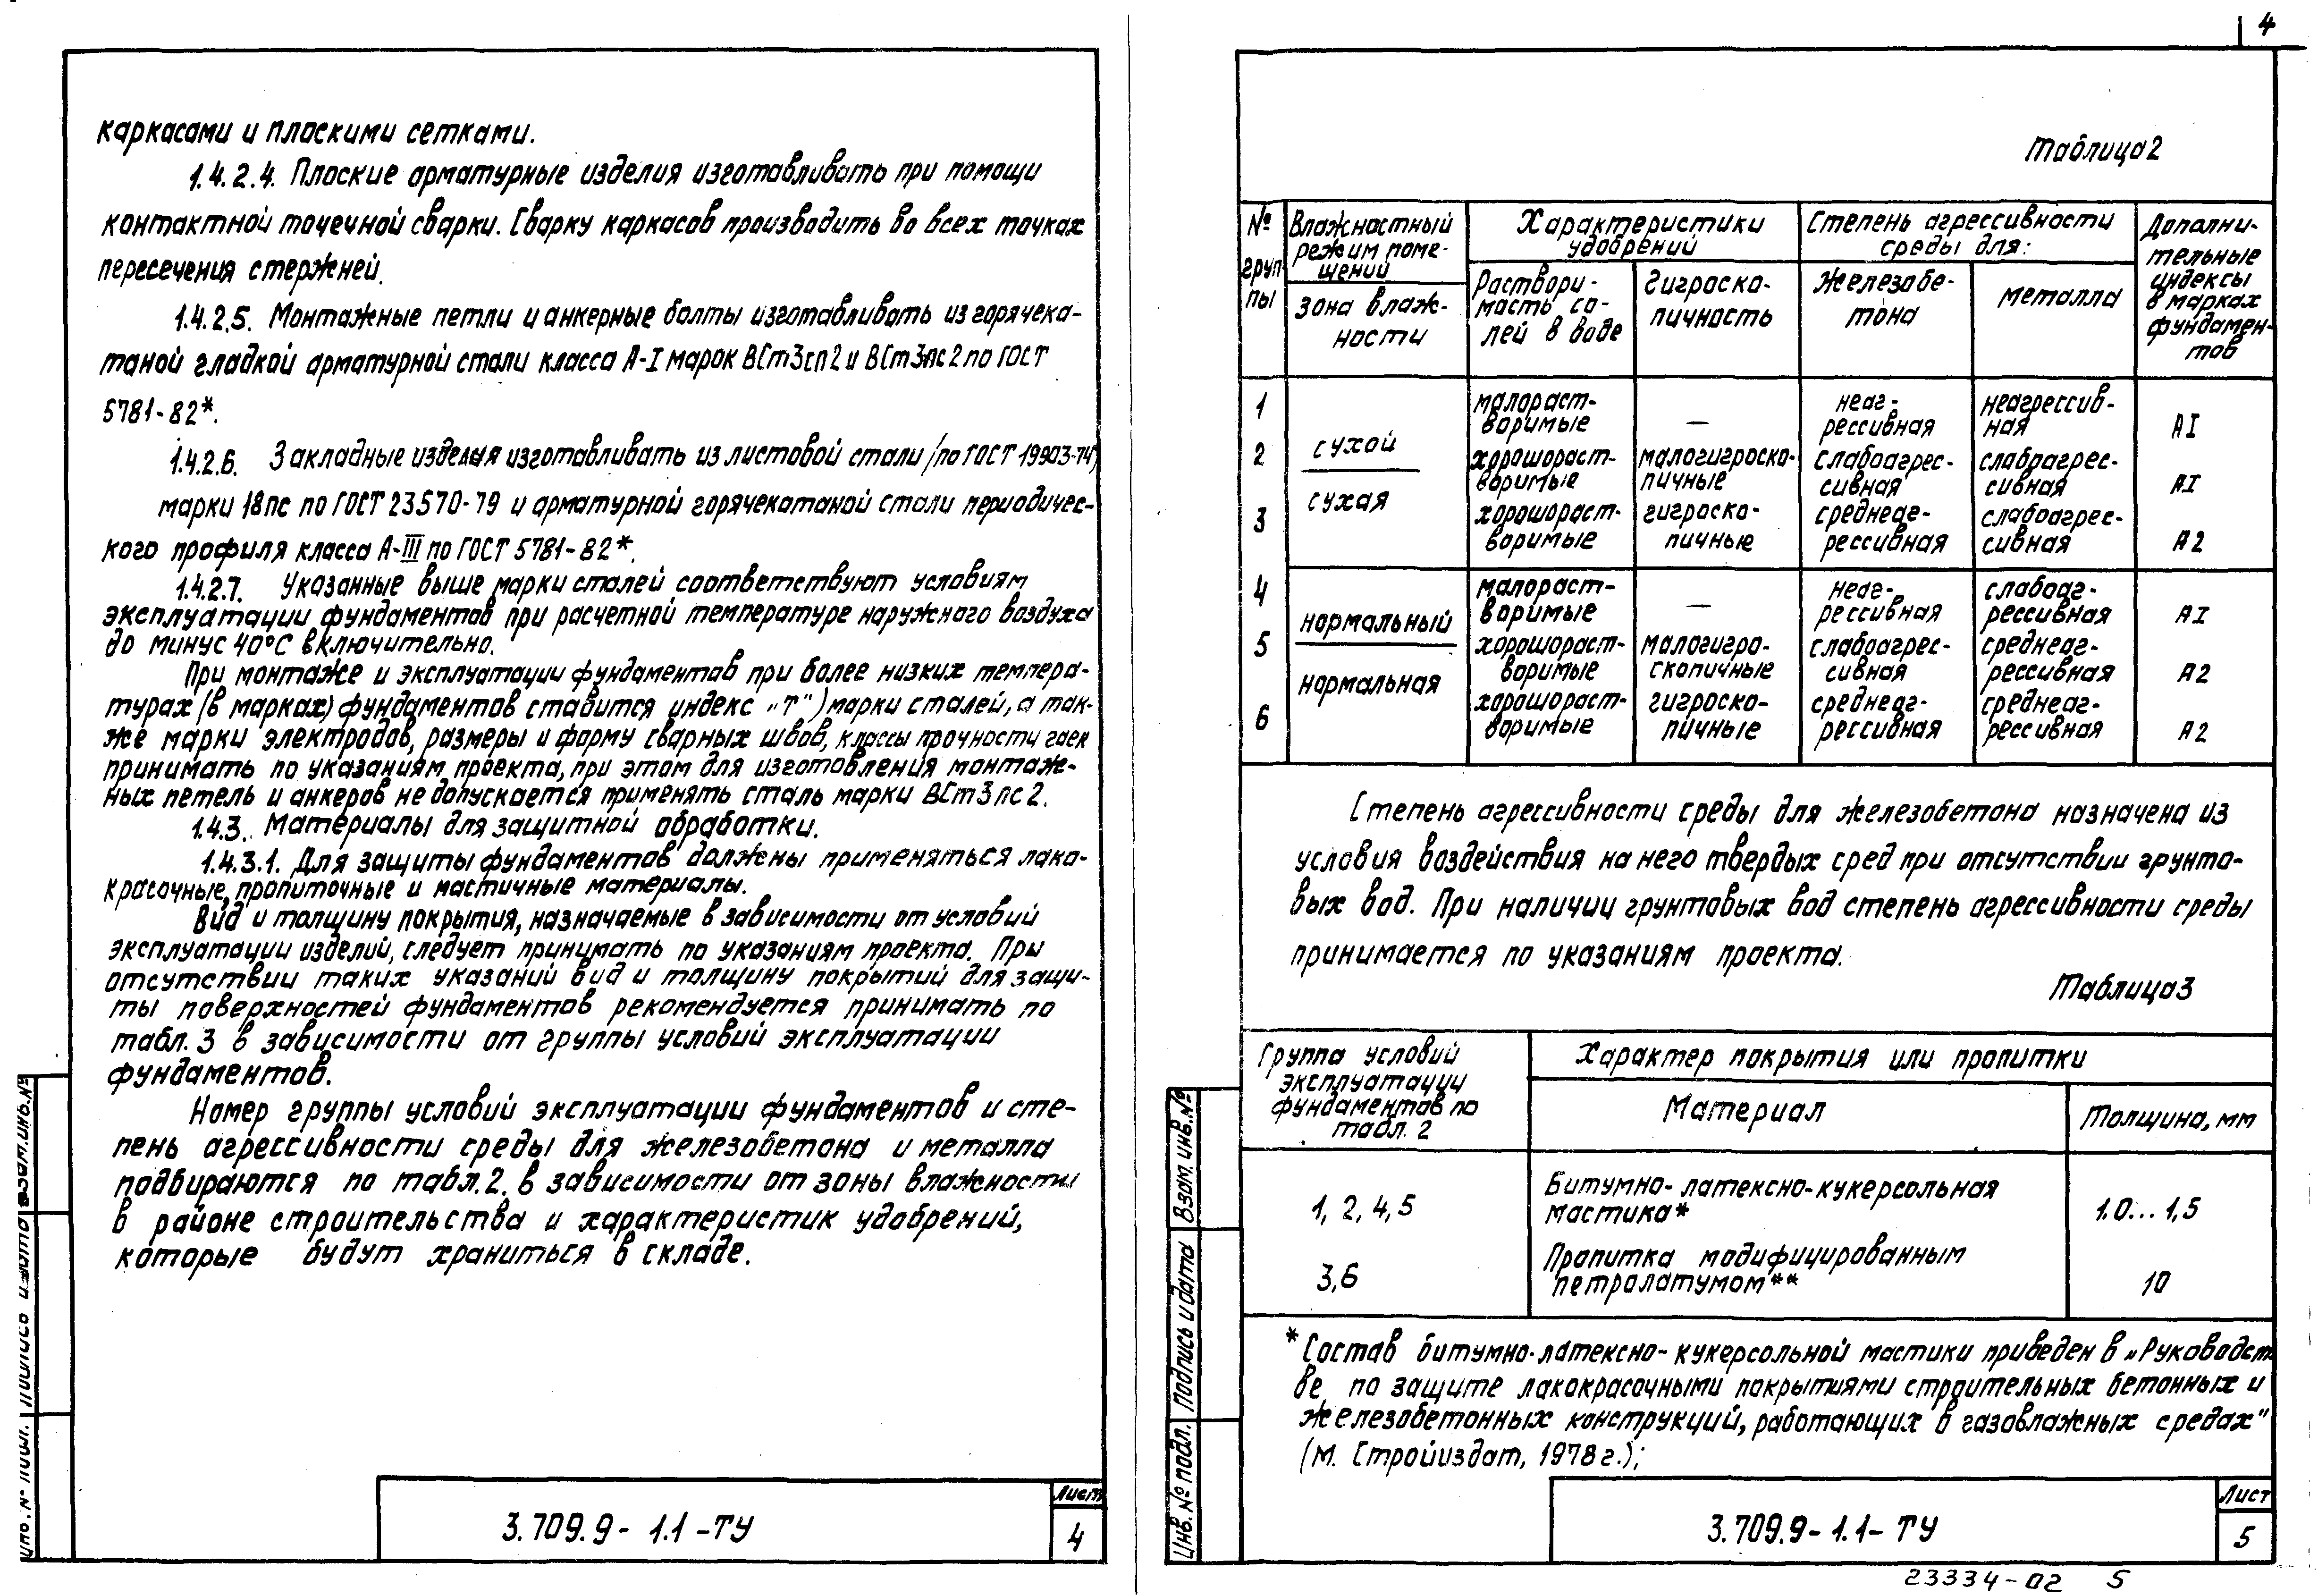 каркасами и плоскими сетками.
1.4.2.4. Плоские арматурные изделия изготавливать при помощи
контактной точечной сварки. Сварку каркасов производить во всех точках
пересечения стержней.
1.4.2.5. Монтажные петли и анкерные болты изготавливать из горячека-
таной гладкой арматурной стали класса А-I марок ВСт3сп2 и ВСт3пс2 по ГОСТ
5781-82*.
1.4.2.6. Закладные изделия изготавливать из листовой стали (по ГОСТ 19903-74)
марки 18пс по ГОСТ 23570-79 и арматурной горячекатаной стали периодичес-
кого профиля класса А-III по ГОСТ 5781-82*.
1.4.2.7. Указанные выше марки сталей соответствуют условиям
эксплуатации фундаментов при расчетной температуре наружного воздуха
до минус 40°С включительно.
При монтаже и эксплуатации фундаментов при более низких темпера-
турах (в марках) фундаментов ставится индекс „Т") марки сталей, а так-
же марки электродов, размеры и форму сварных швов, классы прочности гаек
принимать по указаниям проекта, при этом для изготовления монтаж-
ных петель и анкеров не допускается применять сталь марки ВСт3пс2.
1.4.3. Материалы для защитной обработки.
1.4.3.1. Для защиты фундаментов должны применяться лако-
красочные, пропиточные и мастичные материалы.
Вид и толщину покрытия, назначаемые в зависимости от условий
эксплуатации изделий, следует принимать по указаниям проекта. При
отсутствии таких указаний вид и толщину покрытий для защи-
ты поверхностей фундаментов рекомендуется принимать по
табл. 3 в зависимости от группы условий эксплуатации
фундаментов.
Номер группы условий эксплуатации фундаментов и сте-
пень агрессивности среды для железобетона и металла
подбираются по табл.2. в зависимости от зоны влажности
в районе строительства и характеристик удобрений,
которые будут храниться в складе.
3.709.9-1.1-ТУ
Лист
4
Инв.№ подл. Подпись и дата Взам.инв.№
4
Таблица 2
№ груп-пы
Влажностный режим поме-щений
зона влаж-ности
Характеристики удобрений
Раствори-мость со-лей в воде
Гигроско-пичность
Степень агрессивности среды для:
Железобе-тона
металла
Дополни-тельные индексы в марках фундамен-тов
1 малораст-воримые — неаг-рессивная неагрессив-ная АI
сухой
2 хорошораст-воримые малогигроско-пичные слабоагрес-сивная слабоагрес-сивная АI
сухая
3 хорошораст-воримые гигроско-пичные среднеаг-рессивная слабоагрес-сивная А2
4 малораст-воримые — неаг-рессивная слабоаг-рессивная АI
нормальный
5 хорошораст-воримые малогигро-скопичные слабоагрес-сивная среднеаг-рессивная А2
нормальная
6 хорошораст-воримые гигроско-пичные среднеаг-рессивная среднеаг-рессивная А2
Степень агрессивности среды для железобетона назначена из
условия воздействия на него твердых сред при отсутствии грунто-
вых вод. При наличии грунтовых вод степень агрессивности среды
принимается по указаниям проекта.
Таблица 3
Группа условий эксплуатации фундаментов по табл. 2
Характер покрытия или пропитки
Материал
Толщина, мм
1, 2, 4, 5 Битумно-латексно-кукерсольная мастика* 1.0...1,5
3,6 Пропитка модифицированным петролатумом** 10
*Состав битумно-латексно-кукерсольной мастики приведен в „Руководст
ве по защите лакокрасочными покрытиями строительных бетонных и
железобетонных конструкций, работающих в газовлажных средах"
(М. Стройиздат, 1978г.);
3.709.9-1.1-ТУ
Лист
5
Инв.№ подл. Подпись и дата Взам.инв.№
23334-02 5